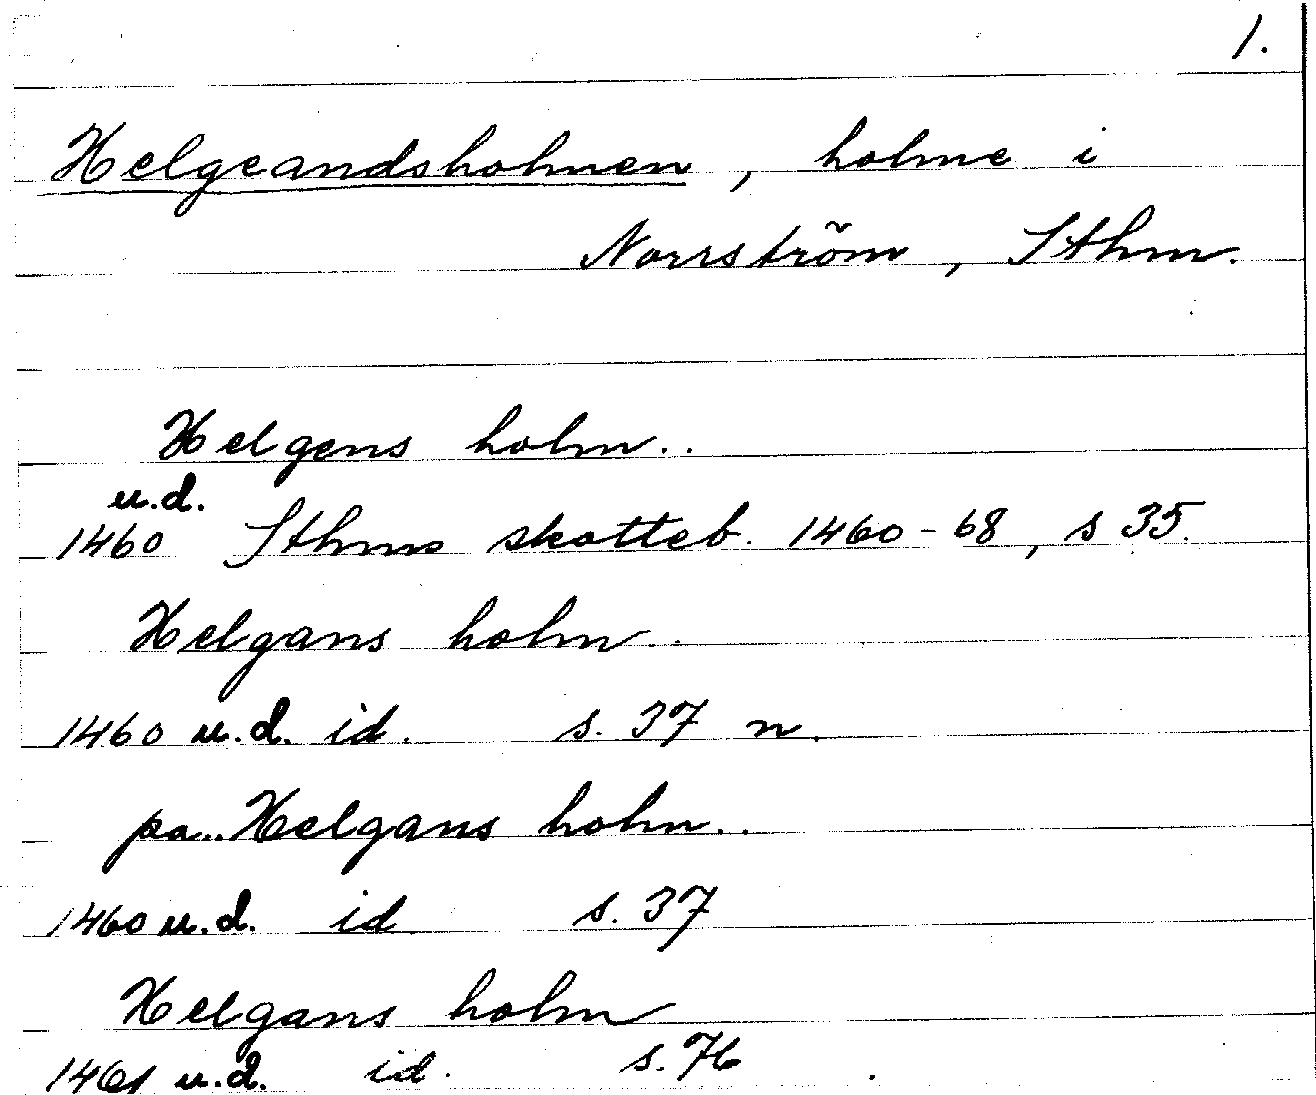 1.
Helgeandsholmen, holme i
Norrström, Sthm.
Helgens holm..
u.d.
1460 Sthms skotteb. 1460-68, s 35.
Helgans holm..
1460 u.d. id. s. 37 n.
pa.. Helgans holm..
1460 u.d. id s. 37
Helgans holm
1461 u.d. id. s. 76